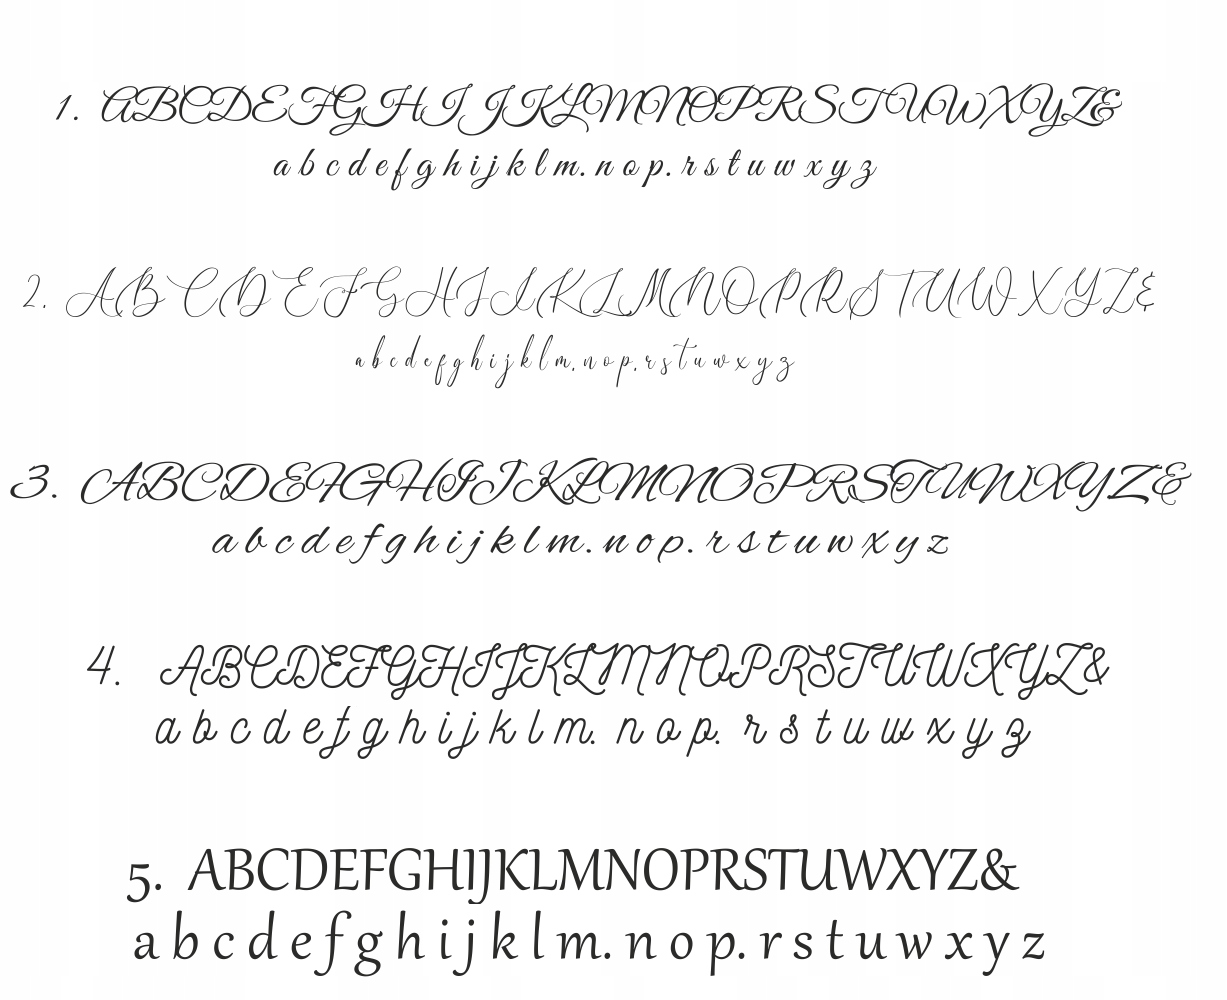 1. ABCDEFGHIJKLMNOPRSTUWXYZ&
a b c d e f g h i j k l m. n o p. r s t u w x y z
2. ABCDEFGHIJKLMNOPRSTUWXYZ&
a b c d e f g h i j k l m. n o p. r s t u w x y z
3. ABCDEFGHIJKLMNOPRSTUWXYZ&
a b c d e f g h i j k l m. n o p. r s t u w x y z
4. ABCDEFGHIJKLMNOPRSTUWXYZ&
a b c d e f g h i j k l m. n o p. r s t u w x y z
5. ABCDEFGHIJKLMNOPRSTUWXYZ&
a b c d e f g h i j k l m. n o p. r s t u w x y z